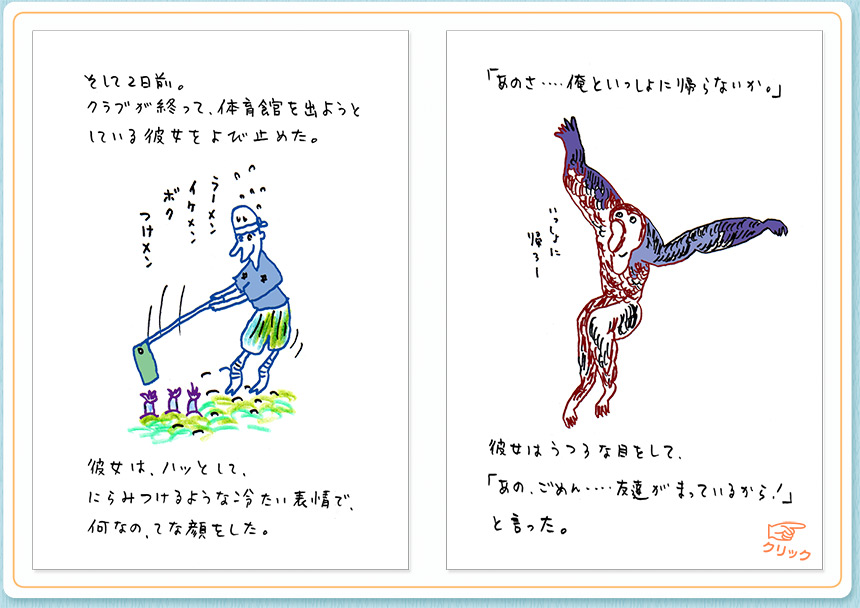 そして2日前。
クラブが終って、体育館を出ようと
している彼女をよび止めた。
ラーメン
イケメン
ボク
つけメン
彼女は、ハッとして、
にらみつけるような冷たい表情で、
何なの、てな顔をした。
「あのさ‥‥俺といっしょに帰らないか。」
いっしょに
帰ろー
彼女はうつろな目をして、
「あの、ごめん‥‥友達がまっているから!」
と言った。
クリック